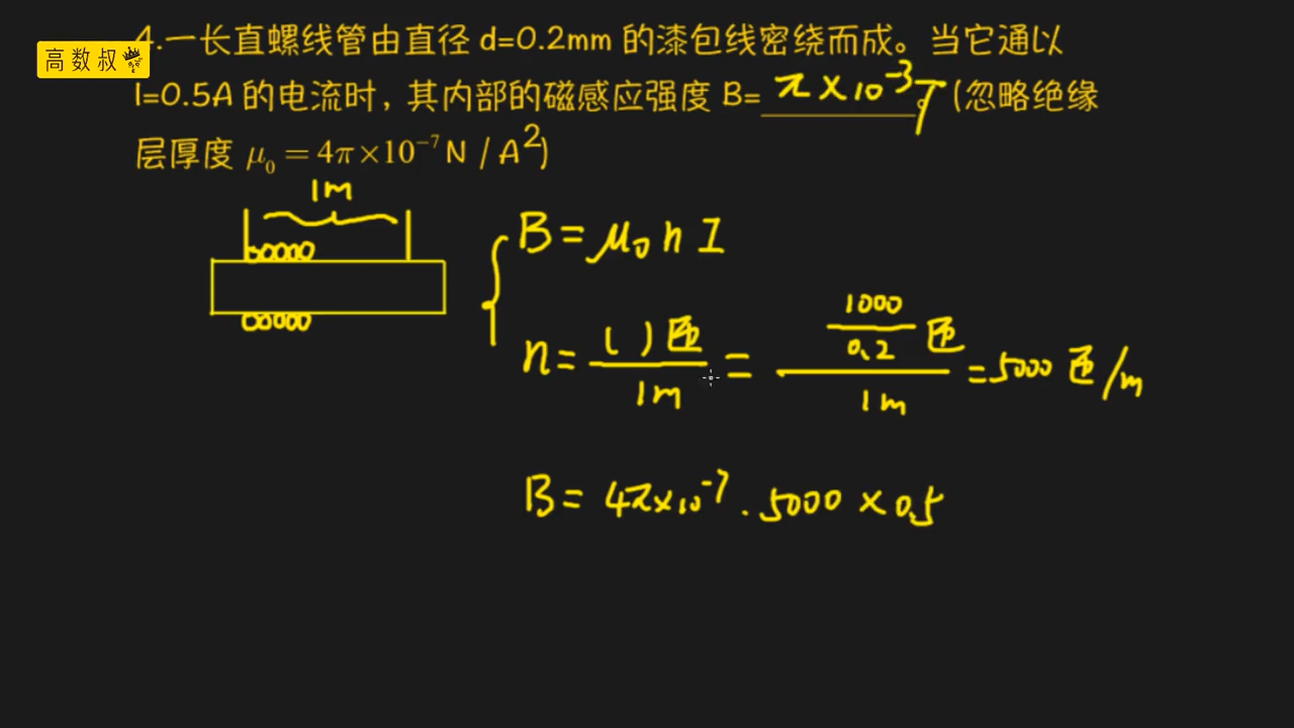 高数叔
4.一长直螺线管由直径 d=0.2mm 的漆包线密绕而成。当它通以
I=0.5A 的电流时，其内部的磁感应强度 B=π×10⁻³T。(忽略绝缘
层厚度 μ₀ = 4π×10⁻⁷ N / A²)
1m
B = μ₀ n I
n = ( )匝 / 1m = 1000/0.2 匝 / 1m = 5000 匝/m
B = 4π×10⁻⁷ . 5000 × 0.5